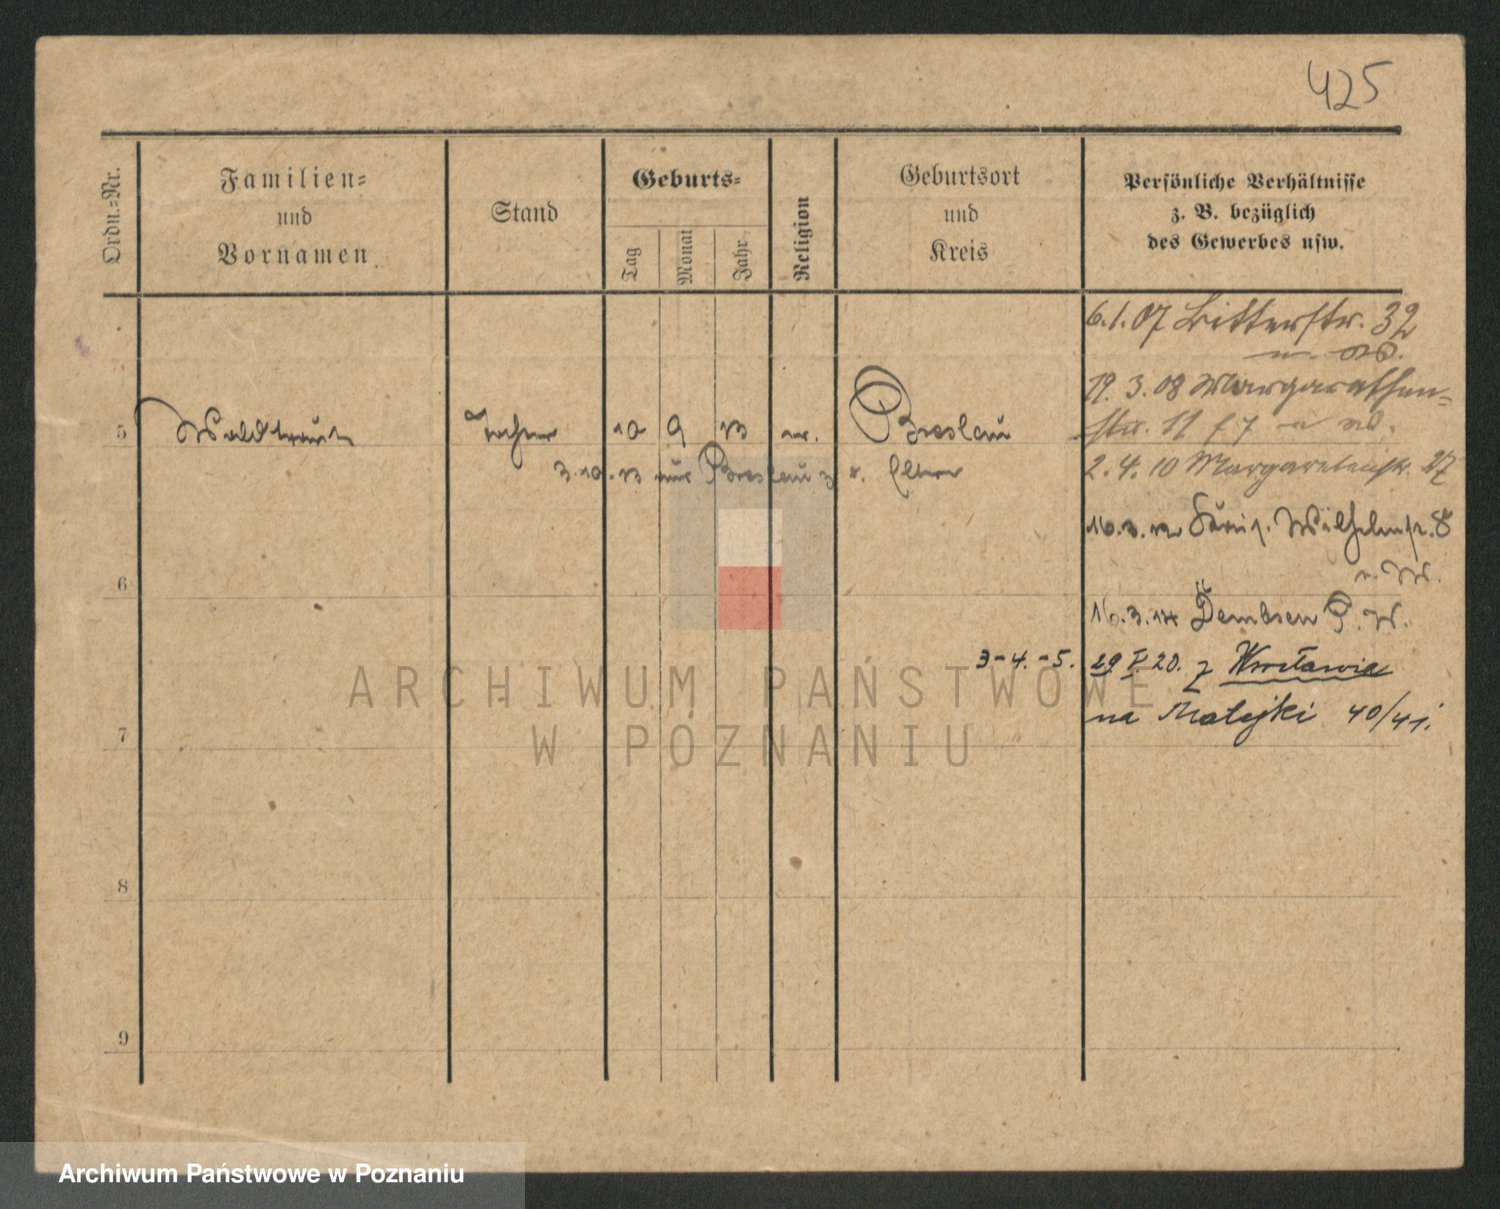 425
Ordn.=Nr.
Familien=
und
Vornamen
Stand
Geburts=
Tag
Monat
Jahr
Religion
Geburtsort
und
Kreis
Persönliche Verhältnisse
z. B. bezüglich
des Gewerbes usw.
6.1.07 Ritterstr. 32
19.3.08 Margarethen=
str. 11
5 Waldtraut Tochter 10 9 13 Breslau
3.10.13 aus Breslau z. Eltern
2.4.10 Margaretenstr. 27
16.3.12 Wilhelmstr. 8
n. W.
6
16.3.14 Dembsen
3-4.-5. 29.V.20. z Wrocławia
na Matejki 40/41.
7
8
9
ARCHIWUM PAŃSTWOWE
W POZNANIU
Archiwum Państwowe w Poznaniu